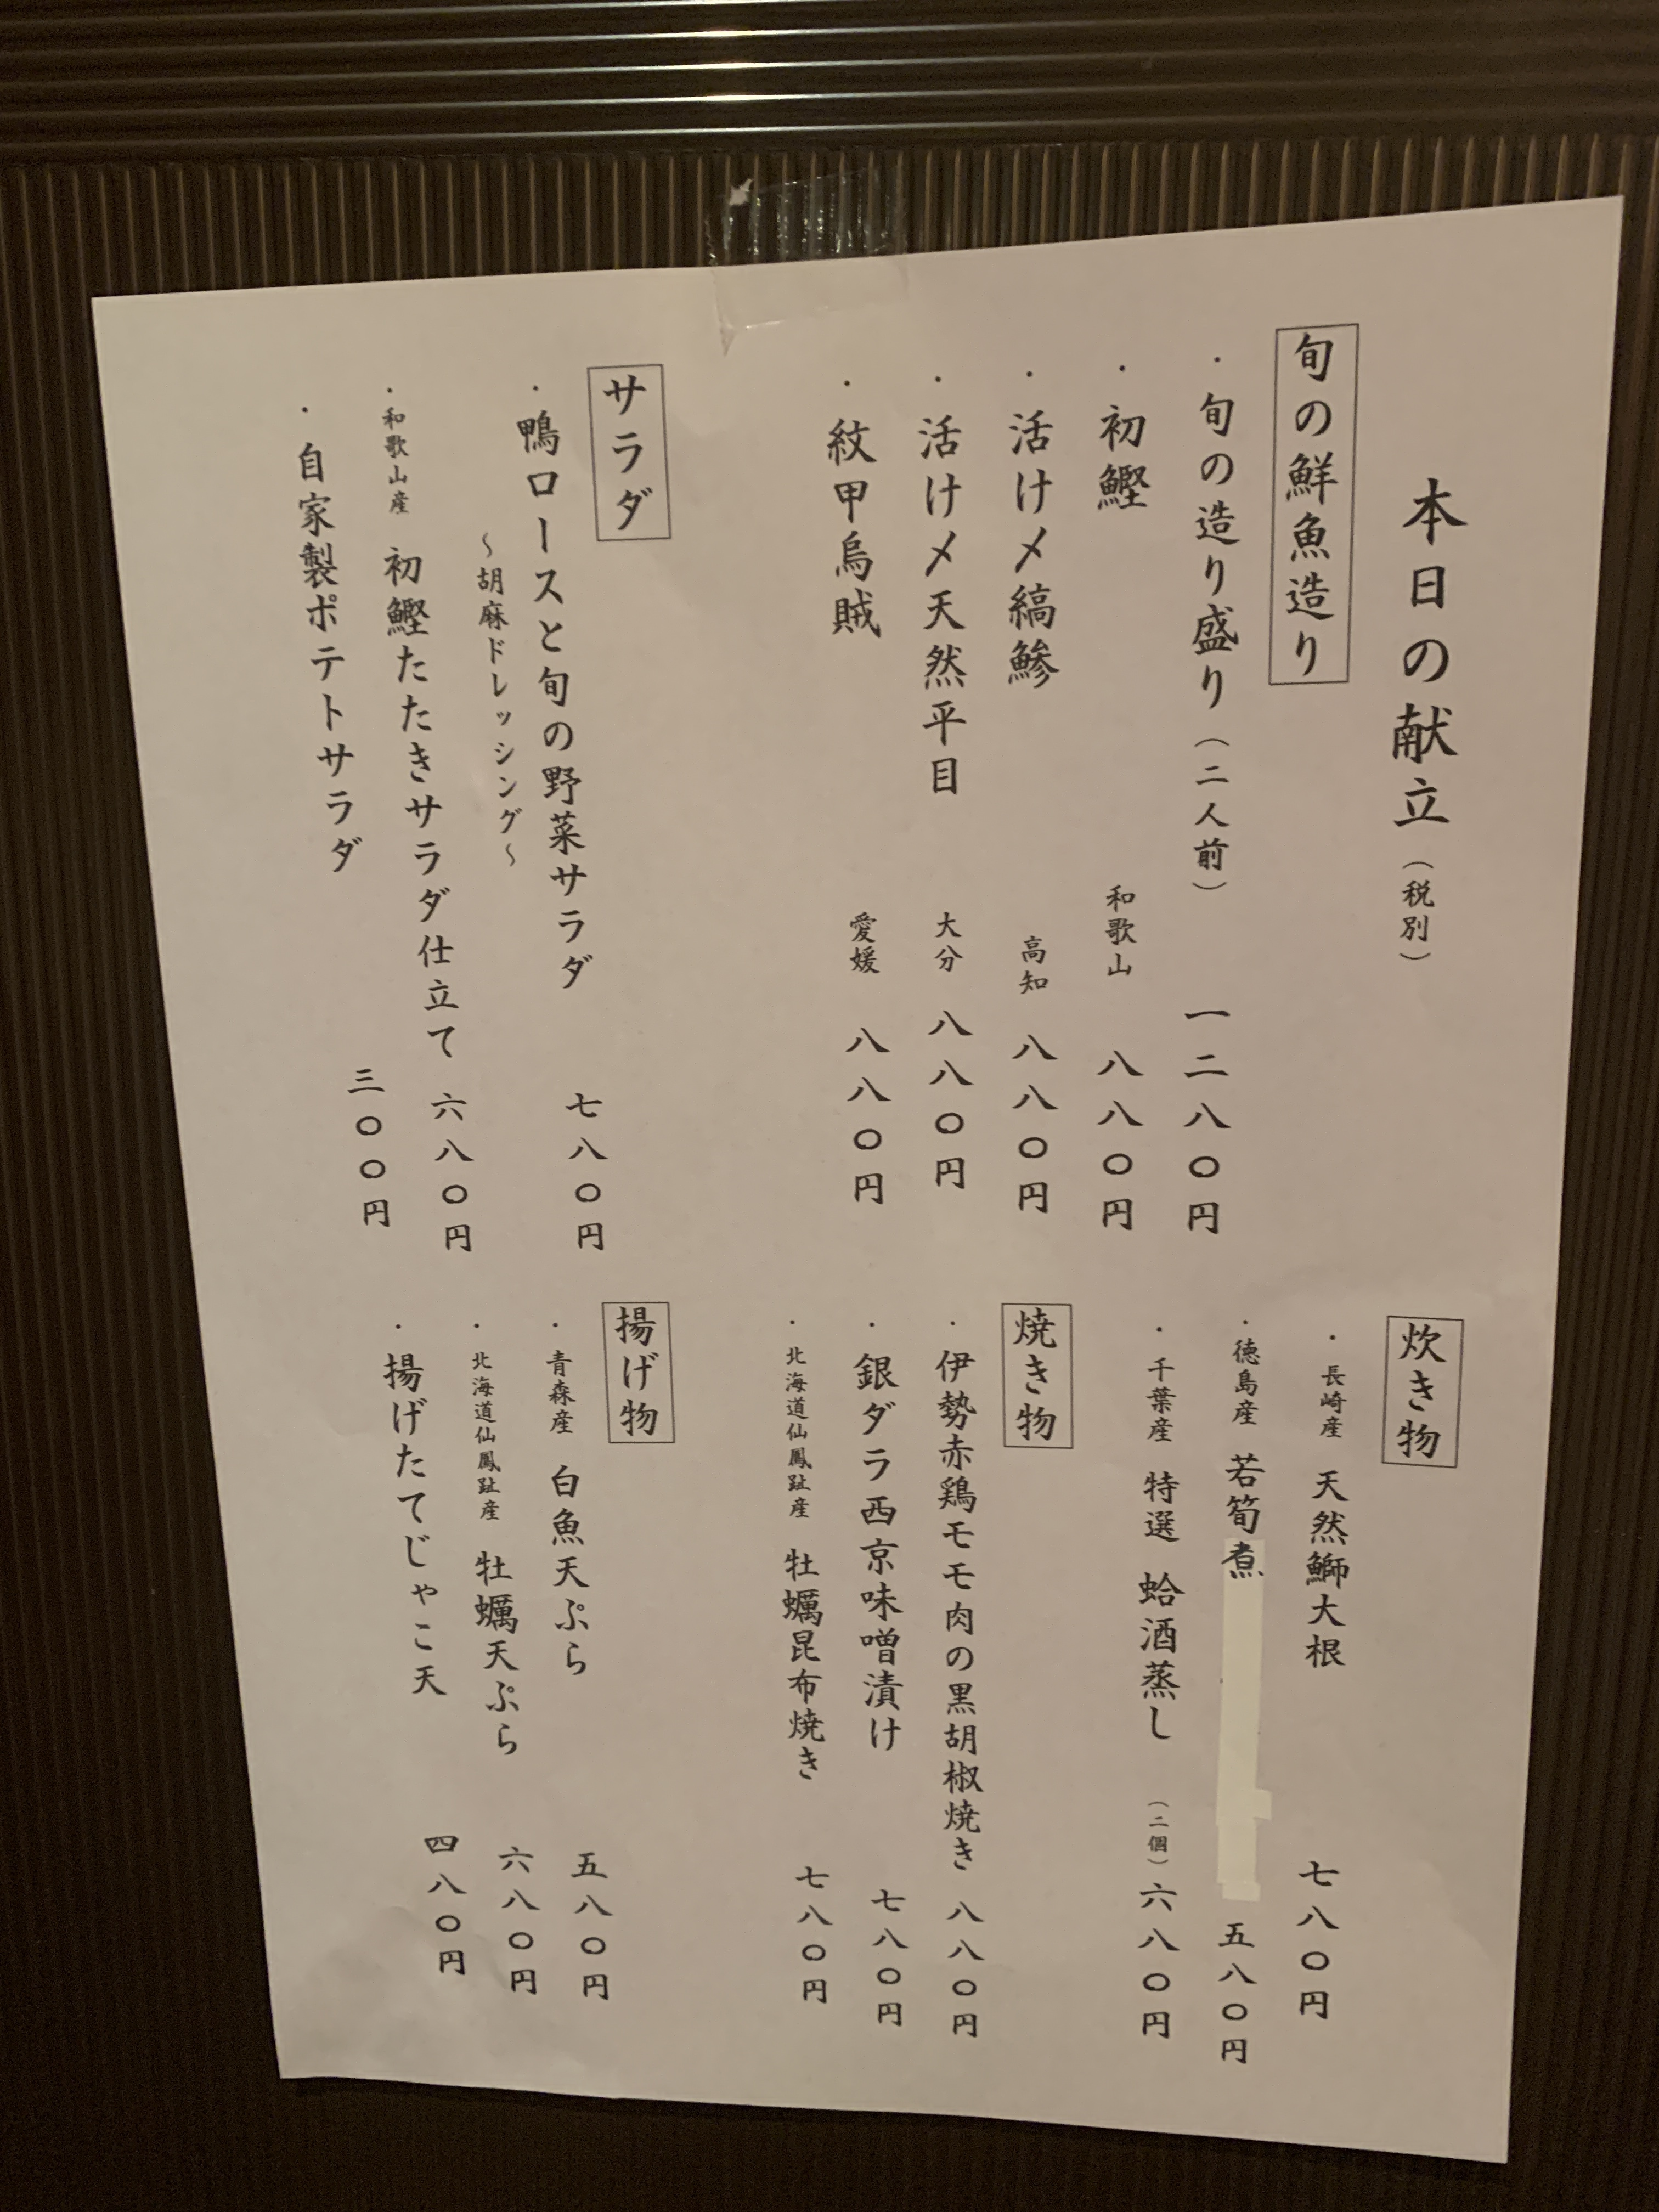 本日の献立（税別）
旬の鮮魚造り
・旬の造り盛り（二人前） 一二八〇円
・初鰹 和歌山 八八〇円
・活け〆縞鯵 高知 八八〇円
・活け〆天然平目 大分 八八〇円
・紋甲烏賊 愛媛 八八〇円
サラダ
・鴨ロースと旬の野菜サラダ 七八〇円
～胡麻ドレッシング～
・和歌山産 初鰹たたきサラダ仕立て 六八〇円
・自家製ポテトサラダ 三〇〇円
炊き物
・長崎産 天然鰤大根 七八〇円
・徳島産 若筍煮 五八〇円
・千葉産 特選 蛤酒蒸し （二個）六八〇円
焼き物
・伊勢赤鶏モモ肉の黒胡椒焼き 八八〇円
・銀ダラ西京味噌漬け 七八〇円
・北海道仙鳳趾産 牡蠣昆布焼き 七八〇円
揚げ物
・青森産 白魚天ぷら 五八〇円
・北海道仙鳳趾産 牡蠣天ぷら 六八〇円
・揚げたてじゃこ天 四八〇円